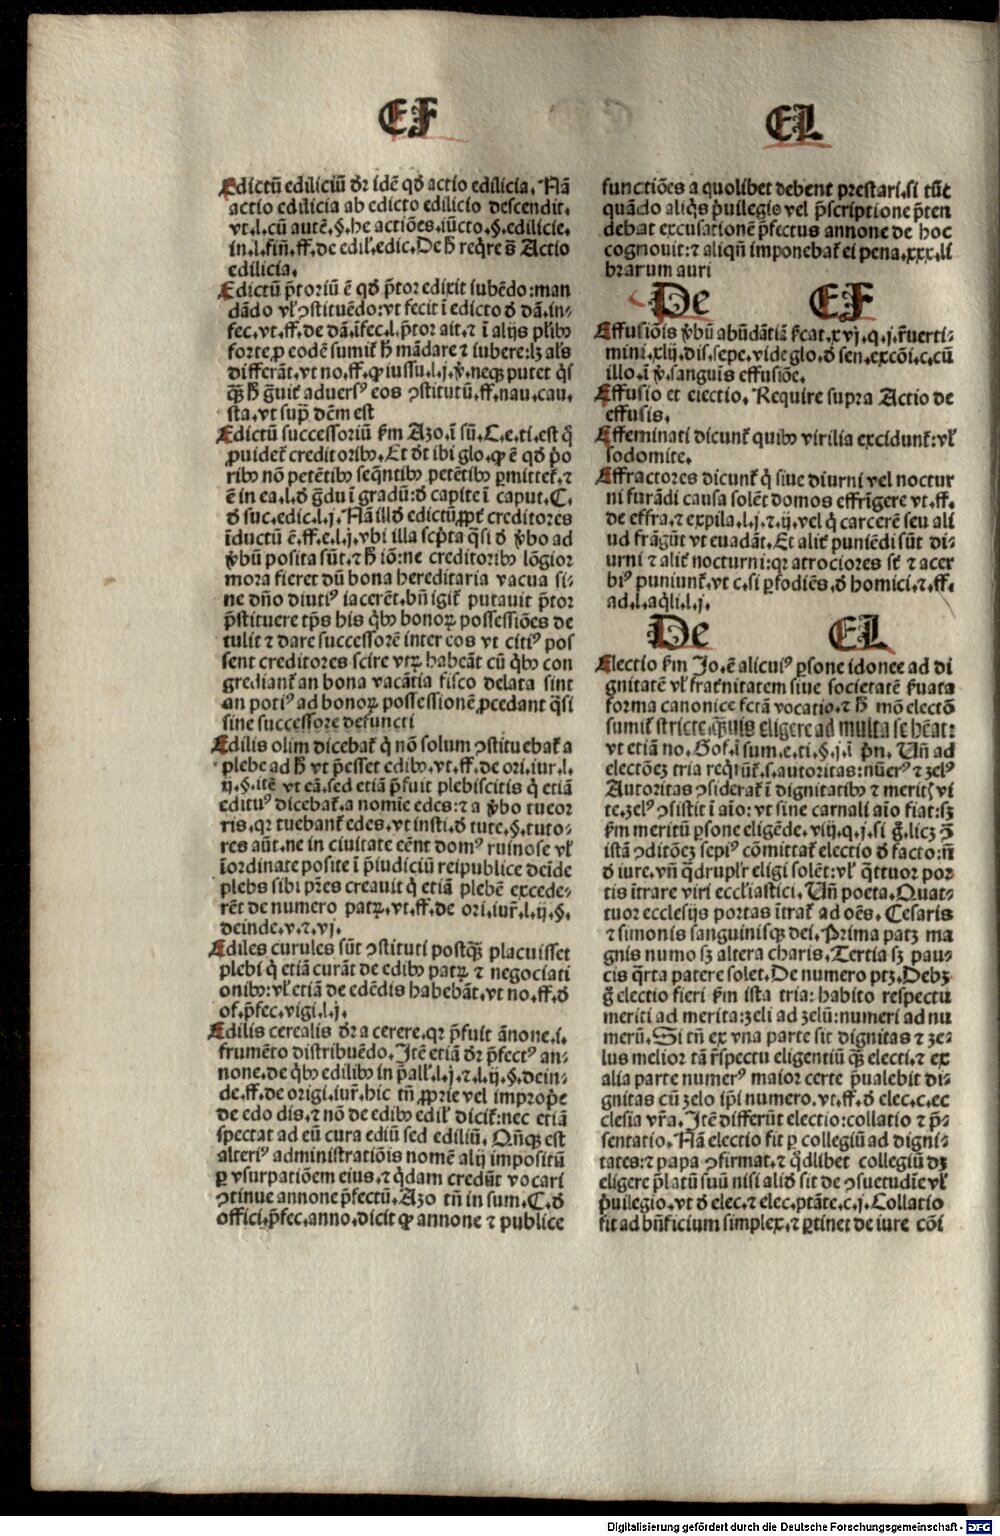 EF
EL
Edictū ediliciū dr̄ idē qd̄ actio edilicia. Nā
actio edilicia ab edicto edilicio descendit.
vt.l.cū autē.§.he actiões.iūcto.§.edilicie.
in.l.fiñ.ff.de edil'.edic. De h̄ reqͥre s̄ Actio
edilicia.
Edictū p̄toriū ē qd̄ p̄tor edixit iubēdo: man
dādo vl' ꝯstituēdo: vt fecit ī edicto d̄ dā.in-
fec.vt.ff.de dā.īfec.l.p̄tor ait.⁊ ī alijs pl'ibꝰ
forte ꝓ eodē sumit᷑ h̄ mādare ⁊ iubere: lꝫ al's
differāt.vt no.ff.ꝙ iussu.l.j.ꝟ.neqꝫ putet qͥs
qꝫ̄ h̄ g̈uit᷑ aduersꝰ eos ꝯstitutū.ff.nau.cau.
sta.vt sup̄ dēm est
Edictū successoriū f̄m Azo.ī sū.C.e.ti.est qͥ
ꝓuidet᷑ creditoribꝰ. Et dr̄ ibi glo.ꝙ ē qd̄ p̄o
ribꝰ nō petētibꝰ seqñtibꝰ petētibꝰ ꝑmittet᷑.⁊
ē in ea.l.d̄ g̈du ī gradū: d̄ capite ī caput.C.
d̄ suc.edic.l.j. Nā ill'd edictū ꝓpt᷑ creditores
īductū ē.ff.e.l.j.vbi illa scp̄ta qͣsi d̄ ꝟbo ad
ꝟbū posita sūt.⁊ h̄ iō: ne creditoribꝰ lōgior
mora fieret dū bona hereditaria vacua si-
ne dño diutiꝰ iacerēt.bñ igit᷑ putauit p̄tor
p̄stituere tp̄s his qͥbꝰ bonoꝝ possessiões de
tulit ⁊ dare successorē inter eos vt citiꝰ pos
sent creditores scire vtꝝ habeāt cū qͥbꝰ con
grediant᷑ an bona vacātia fisco delata sint
an potiꝰ ad bonoꝝ possessionē ꝓcedant qͣsi
sine successore defuncti
Edilis olim dicebat᷑ qͥ nō solum ꝯstituebat᷑ a
plebe ad h̄ vt p̄esset edibꝰ.vt.ff.de ori.iur.l.
ij.§.itē vt eā.sed etiā p̄fuit plebiscitis qͥ etiā
editꝰ dicebat᷑.a nomīe edes: ⁊ a ꝟbo tueor
ris.qr tuebant᷑ edes.vt insti.d̄ tute.§.tuto-
res aūt.ne in ciuitate eēnt domꝰ ruinose vl'
īordinate posite ī p̄iudiciū reipublice deīde
plebs sibi p̄res creauit qͥ etiā plebē excede-
rēt de numero patꝝ.vt.ff.de ori.iur̄.l.ij.§.
deinde.v.⁊.vj.
Ediles curules sūt ꝯstituti postqꝫ̄ placuisset
plebi qͥ etiā curāt de edibꝰ patꝝ ⁊ negociati
onibꝰ: vl' etiā de edēdis habebāt.vt no.ff.d̄
of.p̄fec.vigi.l.j.
Edilis cerealis dr̄ a cerere.qr p̄fuit ānone.i.
frumēto distribuēdo. Itē etiā dr̄ p̄fectꝰ an-
none.de qͥbꝰ edilibꝰ in p̄all'.l.j.⁊.l.ij.§.dein-
de.ff.de origi.iur̄.hic tñ ꝓprie vel improp̄e
de edo dis.⁊ nō de edibꝰ edil' dicit᷑: nec etiā
spectat ad eū cura ediū sed ediliū. Qñqꝫ est
alteriꝰ administratiōis nomē alij impositū
ꝑ vsurpatiōem eius.⁊ qͥdam credūt vocari
ꝯtinue annone p̄fectū. Azo tñ in sum.C.d̄
offici.p̄fec.anno.dicit ꝙ annone ⁊ publice
functiões a quolibet debent prestari.si tūc
quādo aliqͥs p̄uilegio vel p̄scriptione p̄ten
debat excusationē p̄fectus annone de hoc
cognouit: ⁊ aliqñ imponebat᷑ ei pena.xxx.li
brarum auri
De EF
Effusiōis ꝟbū abūdātiā f̄cat.xvj.q.j.r̄uerti-
mini.xlij.dis.sepe.vide glo.d̄ sen.excōi.c.cū
illo.ī ꝟ.sanguīs effusiōe.
Effusio et eiectio. Require supra Actio de
effusis.
Effeminati dicunt᷑ quibꝰ virilia excidunt᷑: vl'
sodomite.
Effractores dicunt᷑ qͥ siue diurni vel noctur
ni furādi causa solēt domos effrīgere vt.ff.
de effra.⁊ expila.l.j.⁊.ij.vel qͥ carcerē seu ali
ud frāgūt vt euadāt. Et alit᷑ puniēdi sūt di-
urni ⁊ alit᷑ nocturni: qr atrociores st᷑ ⁊ acer
biꝰ puniunt᷑.vt c.si ꝑfodiēs.d̄ homici.⁊.ff.
ad.l.aqͥli.l.j.
De EL
Electio f̄m Jo.ē alicuiꝰ ꝑsone idonee ad di
gnitatē vl' frat᷑nitatem siue societatē f̄uata
forma canonice fctā vocatio.⁊ h̄ mō electō
sumit᷑ stricte.qꝫ̄uis eligere ad multa se hēat:
vt etiā no. Gof.ī sum.e.ti.§.j.ī p̄n. Uñ ad
electōeꝫ tria reqͥrūt᷑.s.autoritas: nūerꝰ ⁊ zelꝰ
Autoritas ꝯsiderat᷑ ī dignitatibꝰ ⁊ meritꝭ vi
te.zelꝰ ꝯsistit ī aīo: vt sine carnali aīo fiat: sꝫ
f̄m meritū ꝑsone eligēde.viij.q.j.si g̈.licꝫ ꝯ̄
istā ꝯditōeꝫ sepiꝰ cōmittat᷑ electio d̄ facto: ñ
d̄ iure.vñ qͣdrupl'r eligi solēt: vl' qͣttuor por
tis ītrare viri eccl'iastici. Uñ poeta. Quat-
tuor ecclesijs portas ītrat᷑ ad oēs. Cesaris
⁊ simonis sanguinisqꝫ dei. Prima patꝫ ma
gnis numo sꝫ altera charis. Tertia sꝫ pau-
cis qͣrta patere solet. De numero ptꝫ. Debꝫ
g̈ electio fieri f̄m ista tria: habito respectu
meriti ad merita: zeli ad zelū: numeri ad nu
merū. Si tñ ex vna parte sit dignitas ⁊ ze-
lus melior tā r̄spectu eligentiū qꝫ̄ electi.⁊ ex
alia parte numerꝰ maior certe p̄ualebit di-
gnitas cū zelo ip̄i numero.vt.ff.d̄ elec.c.ec
clesia vr̄a. Itē differūt electio: collatio ⁊ p̄-
sentatio. Nā electio fit ꝑ collegiū ad digni-
tates: ⁊ papa ꝯfirmat.⁊ qͥdlibet collegiū dꝫ
eligere p̄latū suū nisi aliō sit de ꝯsuetudīe vl'
p̄uilegio.vt d̄ elec.⁊ elec.ptāte.c.j. Collatio
fit ad bñficium simplex.⁊ ꝑtinet de iure cōi
Digitalisierung gefördert durch die Deutsche Forschungsgemeinschaft - DFG